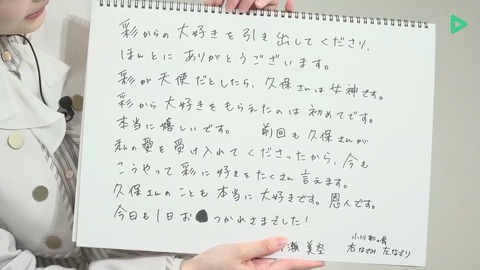 彩からの大好きを引き出してくださり、
ほんとにありがとうございます。
彩が天使だとしたら、久保さんは女神です。
彩から大好きをもらえたのは初めてです。
本当に嬉しいです。 前回も久保さんが
私の愛を受け入れてくださったから、今も
こうやって彩に好きをたくさん言えます。
久保さんのことも本当に大好きです。恩人です。
今日も1日お つかれさまでした!
瀬 美空
小川彩の肩
右なぞり 左なぞり